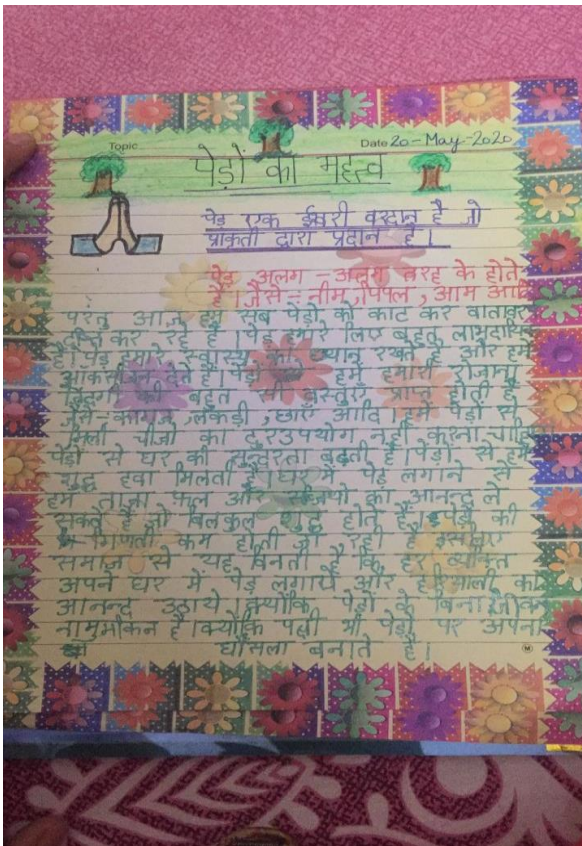 Topic
Date 20-May-2020
पेड़ों का महत्व
पेड़ एक ईश्वरी वरदान है जो
प्राकृती द्वारा प्रदान है।
पेड़ अलग-अलग तरह के होते
है। जैसे - नीम, पिपल, आम आदि
परंतु आज हम सब पेड़ो को काट कर वातावर
कर रहे है। पेड़ हमारे लिए बहुत लाभदायक
है। पेड़ हमारे स्वास्थ्य का ध्यान रखते है और हमें
ऑकसीजन देते है। पेड़ो हमें हमारी रोजाना
की बहुत सी वस्तुएँ प्राप्त होती है
जैसे - कागज, लकड़ी, छाएँ आदि। हमें पेड़ो से
मिली चीजो का दुरउपयोग नहीं करना चाहिए
पेड़ो से घर की सुन्दरता बढ़ती है। पेड़ो से हमें
शुद्ध हवा मिलती है। घर में पेड़ लगाने से
हम ताज़ा फल और सब्जियो का आनन्द ले
सकते है जो बिलकुल शुद्ध होते है। पेड़ो की
गिणती कम होती जा रही है इसलिए
समाज से यह बिनती है कि हर व्यक्ति
अपने घर में पेड़ लगाये और हरियाली का
आनन्द उठाये। क्योंकि पेड़ो के बिना जीवन
नामुमकिन है। क्योंकि पक्षी भी पेड़ो पर अपना
घोंसला बनाते है।